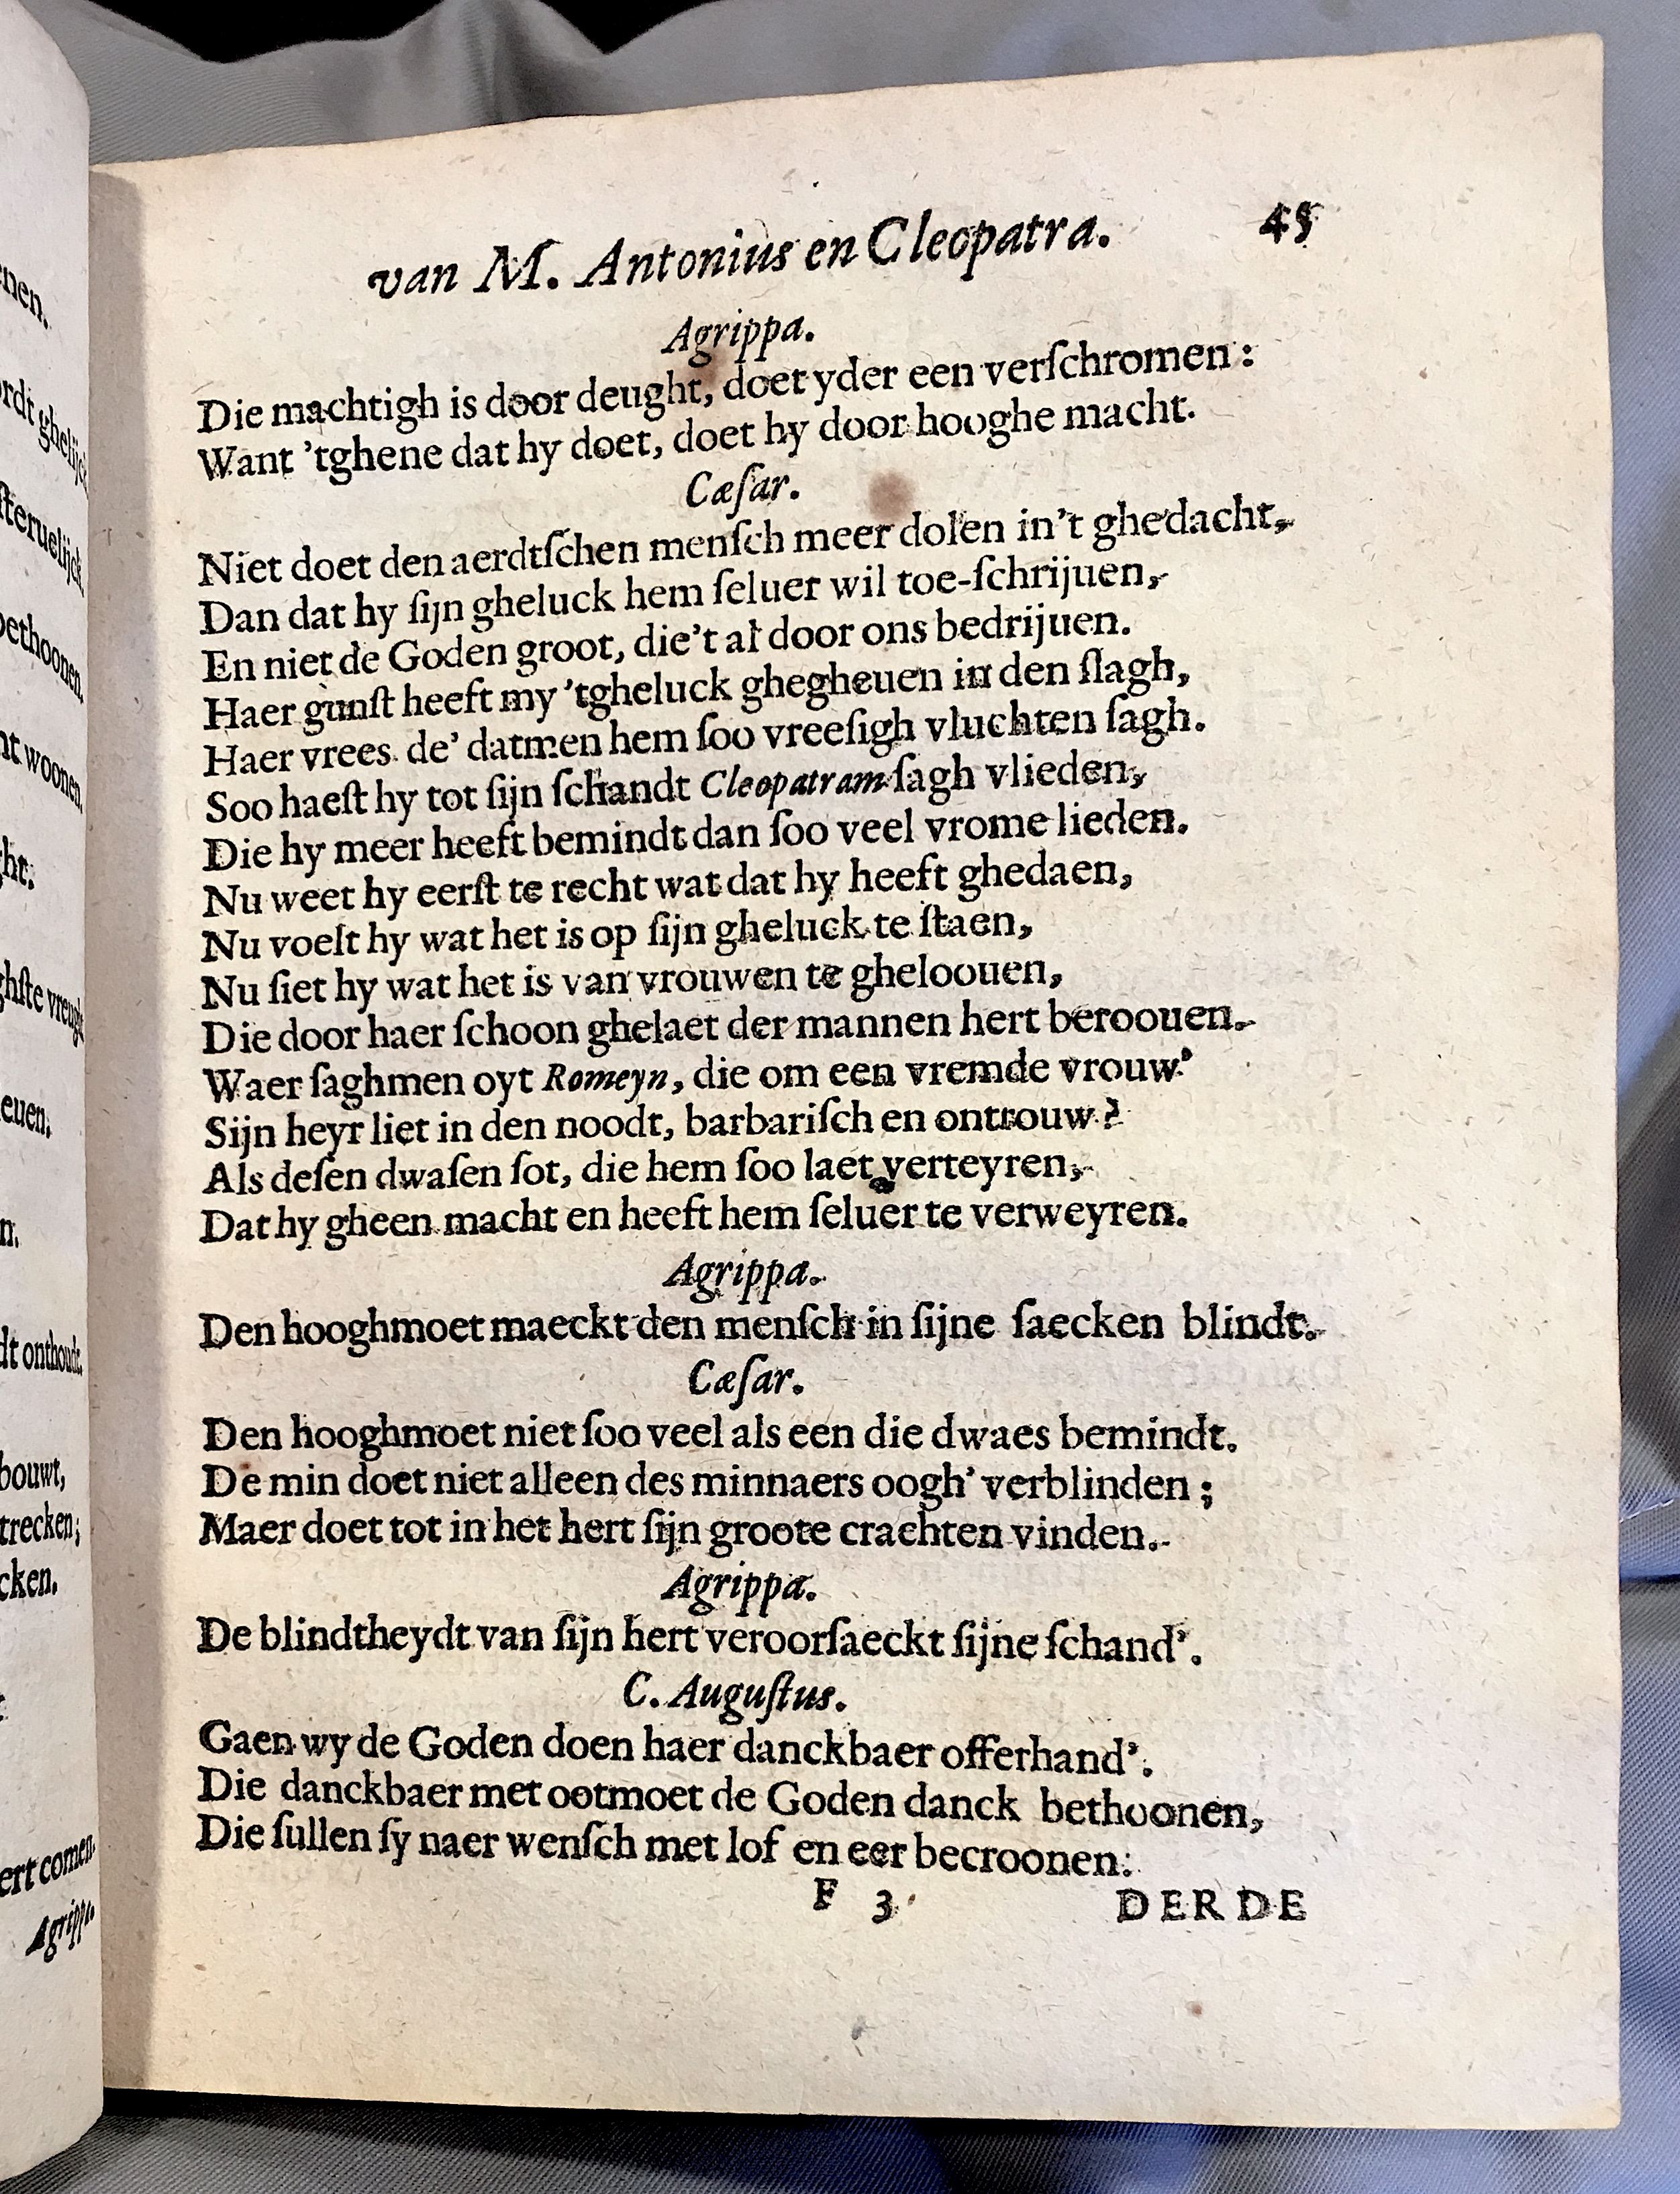 enen.
ordt ghelijck
steruelijck
bethoonen,
nt woonen,
ght:
ghste vreugt
euen,
n.
dt onthoudt.
bouwt,
trecken;
cken.
ert comen.
Agripp.
van M. Antonius en Cleopatra. 45
Agrippa.
Die machtigh is door deught, doet yder een verſchromen :
Want 'tghene dat hy doet, doet hy door hooghe macht.
Cæſar.
Niet doet den aerdtſchen menſch meer dolen in't ghedacht,
Dan dat hy ſijn gheluck hem ſeluer wil toe-ſchrijuen,
En niet de Goden groot, die't al door ons bedrijuen.
Haer gunſt heeft my 'tgheluck ghegheuen in den ſlagh,
Haer vrees de' datmen hem ſoo vreeſigh vluchten ſagh.
Soo haeſt hy tot ſijn ſchandt Cleopatram ſagh vlieden,
Die hy meer heeft bemindt dan ſoo veel vrome lieden.
Nu weet hy eerſt te recht wat dat hy heeft ghedaen,
Nu voelt hy wat het is op ſijn gheluck te ſtaen,
Nu ſiet hy wat het is van vrouwen te gheloouen,
Die door haer ſchoon ghelaet der mannen hert beroouen.
Waer ſaghmen oyt Romeyn, die om een vremde vrouw'
Sijn heyr liet in den noodt, barbariſch en ontrouw?
Als deſen dwaſen ſot, die hem ſoo laet verteyren,
Dat hy gheen macht en heeft hem ſeluer te verweyren.
Agrippa.
Den hooghmoet maeckt den menſch in ſijne ſaecken blindt.
Cæſar.
Den hooghmoet niet ſoo veel als een die dwaes bemindt.
De min doet niet alleen des minnaers oogh' verblinden ;
Maer doet tot in het hert ſijn groote crachten vinden.
Agrippa.
De blindtheydt van ſijn hert veroorſaeckt ſijne ſchand'.
C. Auguſtus.
Gaen wy de Goden doen haer danckbaer offerhand'.
Die danckbaer met ootmoet de Goden danck bethoonen,
Die ſullen ſy naer wenſch met lof en eer becroonen.
F 3 DERDE